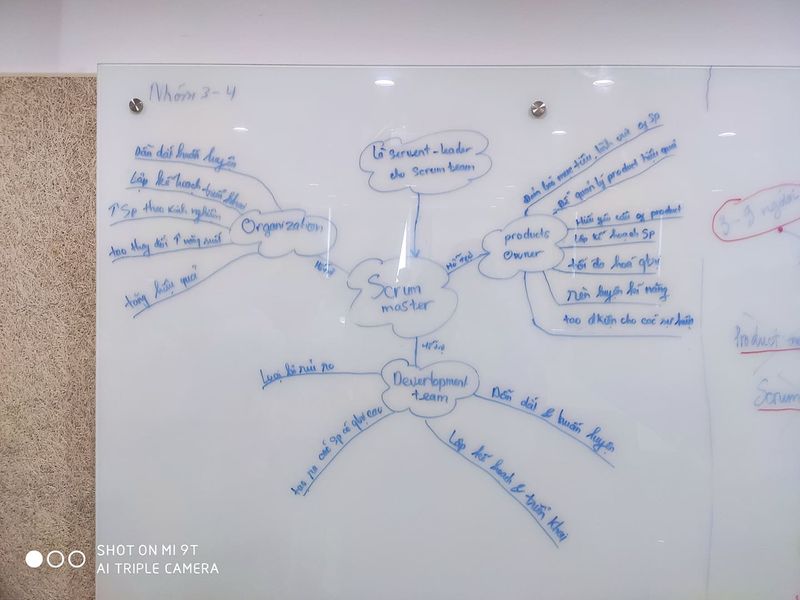 Nhóm 3-4
Là servent-leader
cho scrum team
Scrum
master
Organization
Dẫn dắt huấn luyện
Lập kế hoạch-triển khai
↑ Sp theo kinh nghiệm
tạo thay đổi ↑ năng suất
tăng hiệu quả
Hỗ trợ
Hỗ trợ
products
Owner
quản lý product hiệu quả
Hiểu yêu cầu of product
Lập kế hoạch Sp
tối đa hoá
rèn luyện kĩ năng
tạo đ kiện cho các sự kiện
Hỗ trợ
Deverlopment
team
Loại bỏ rủi ro
tạo ra các Sp có
Lập kế hoạch & triển khai
Dẫn dắt & huấn luyện
3-9 người
Product
Scrum
SHOT ON MI 9T
AI TRIPLE CAMERA